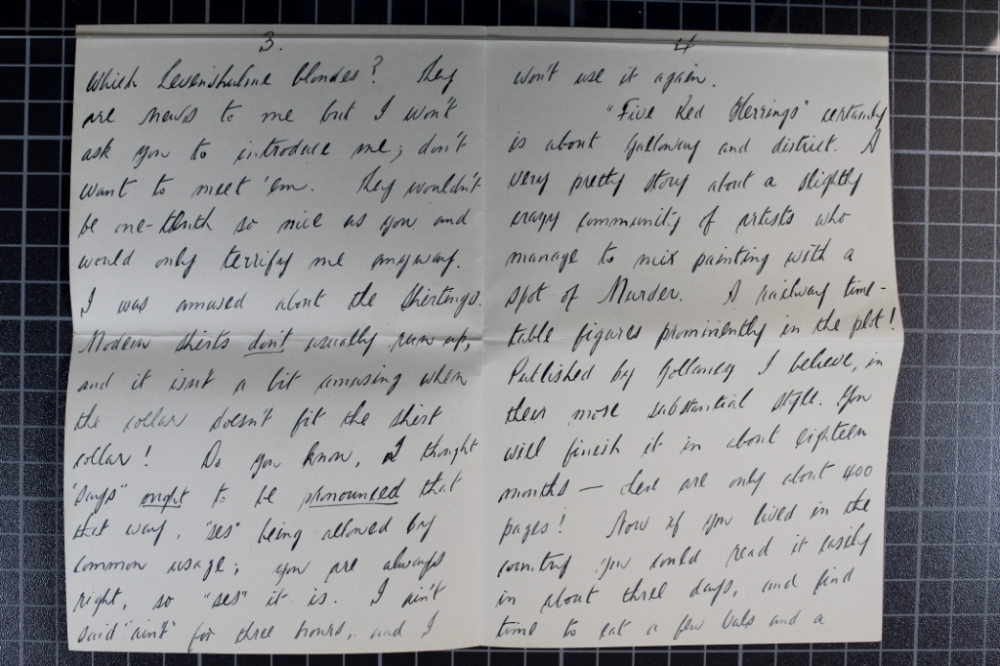 3.
Which Levenshulme blondes? They
are news to me but I won't
ask you to introduce me; don't
want to meet 'em. They wouldn't
be one-tenth so nice as you and
would only terrify me anyway.
I was amused about the shirtings.
Modern shirts don't usually run up,
and it isn't a bit amusing when
the collar doesn't fit the shirt
collar! Do you know, I thought
"says" ought to be pronounced that
that way, "ses" being allowed by
common usage; you are always
right, so "ses" it is. I ain't
said "ain't" for three hours, and I
4
won't use it again.
"Five Red Herrings" certainly
is about Galloway and district. A
very pretty story about a slightly
crazy community of artists who
manage to mix painting with a
spot of Murder. A railway time-
table figures prominently in the plot!
Published by Gollancz I believe, in
their more substantial style. You
will finish it in about eighteen
months — there are only about 400
pages! Now if you lived in the
country you could read it easily
in about three days, and find
time to eat a few and a